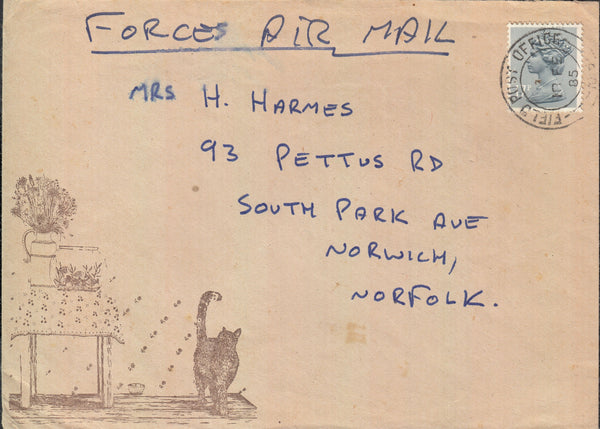 FORCES AIR MAIL
MRS H. HARMES
93 PETTUS RD
SOUTH PARK AVE
NORWICH,
NORFOLK.
FIELD POST OFFICE
85